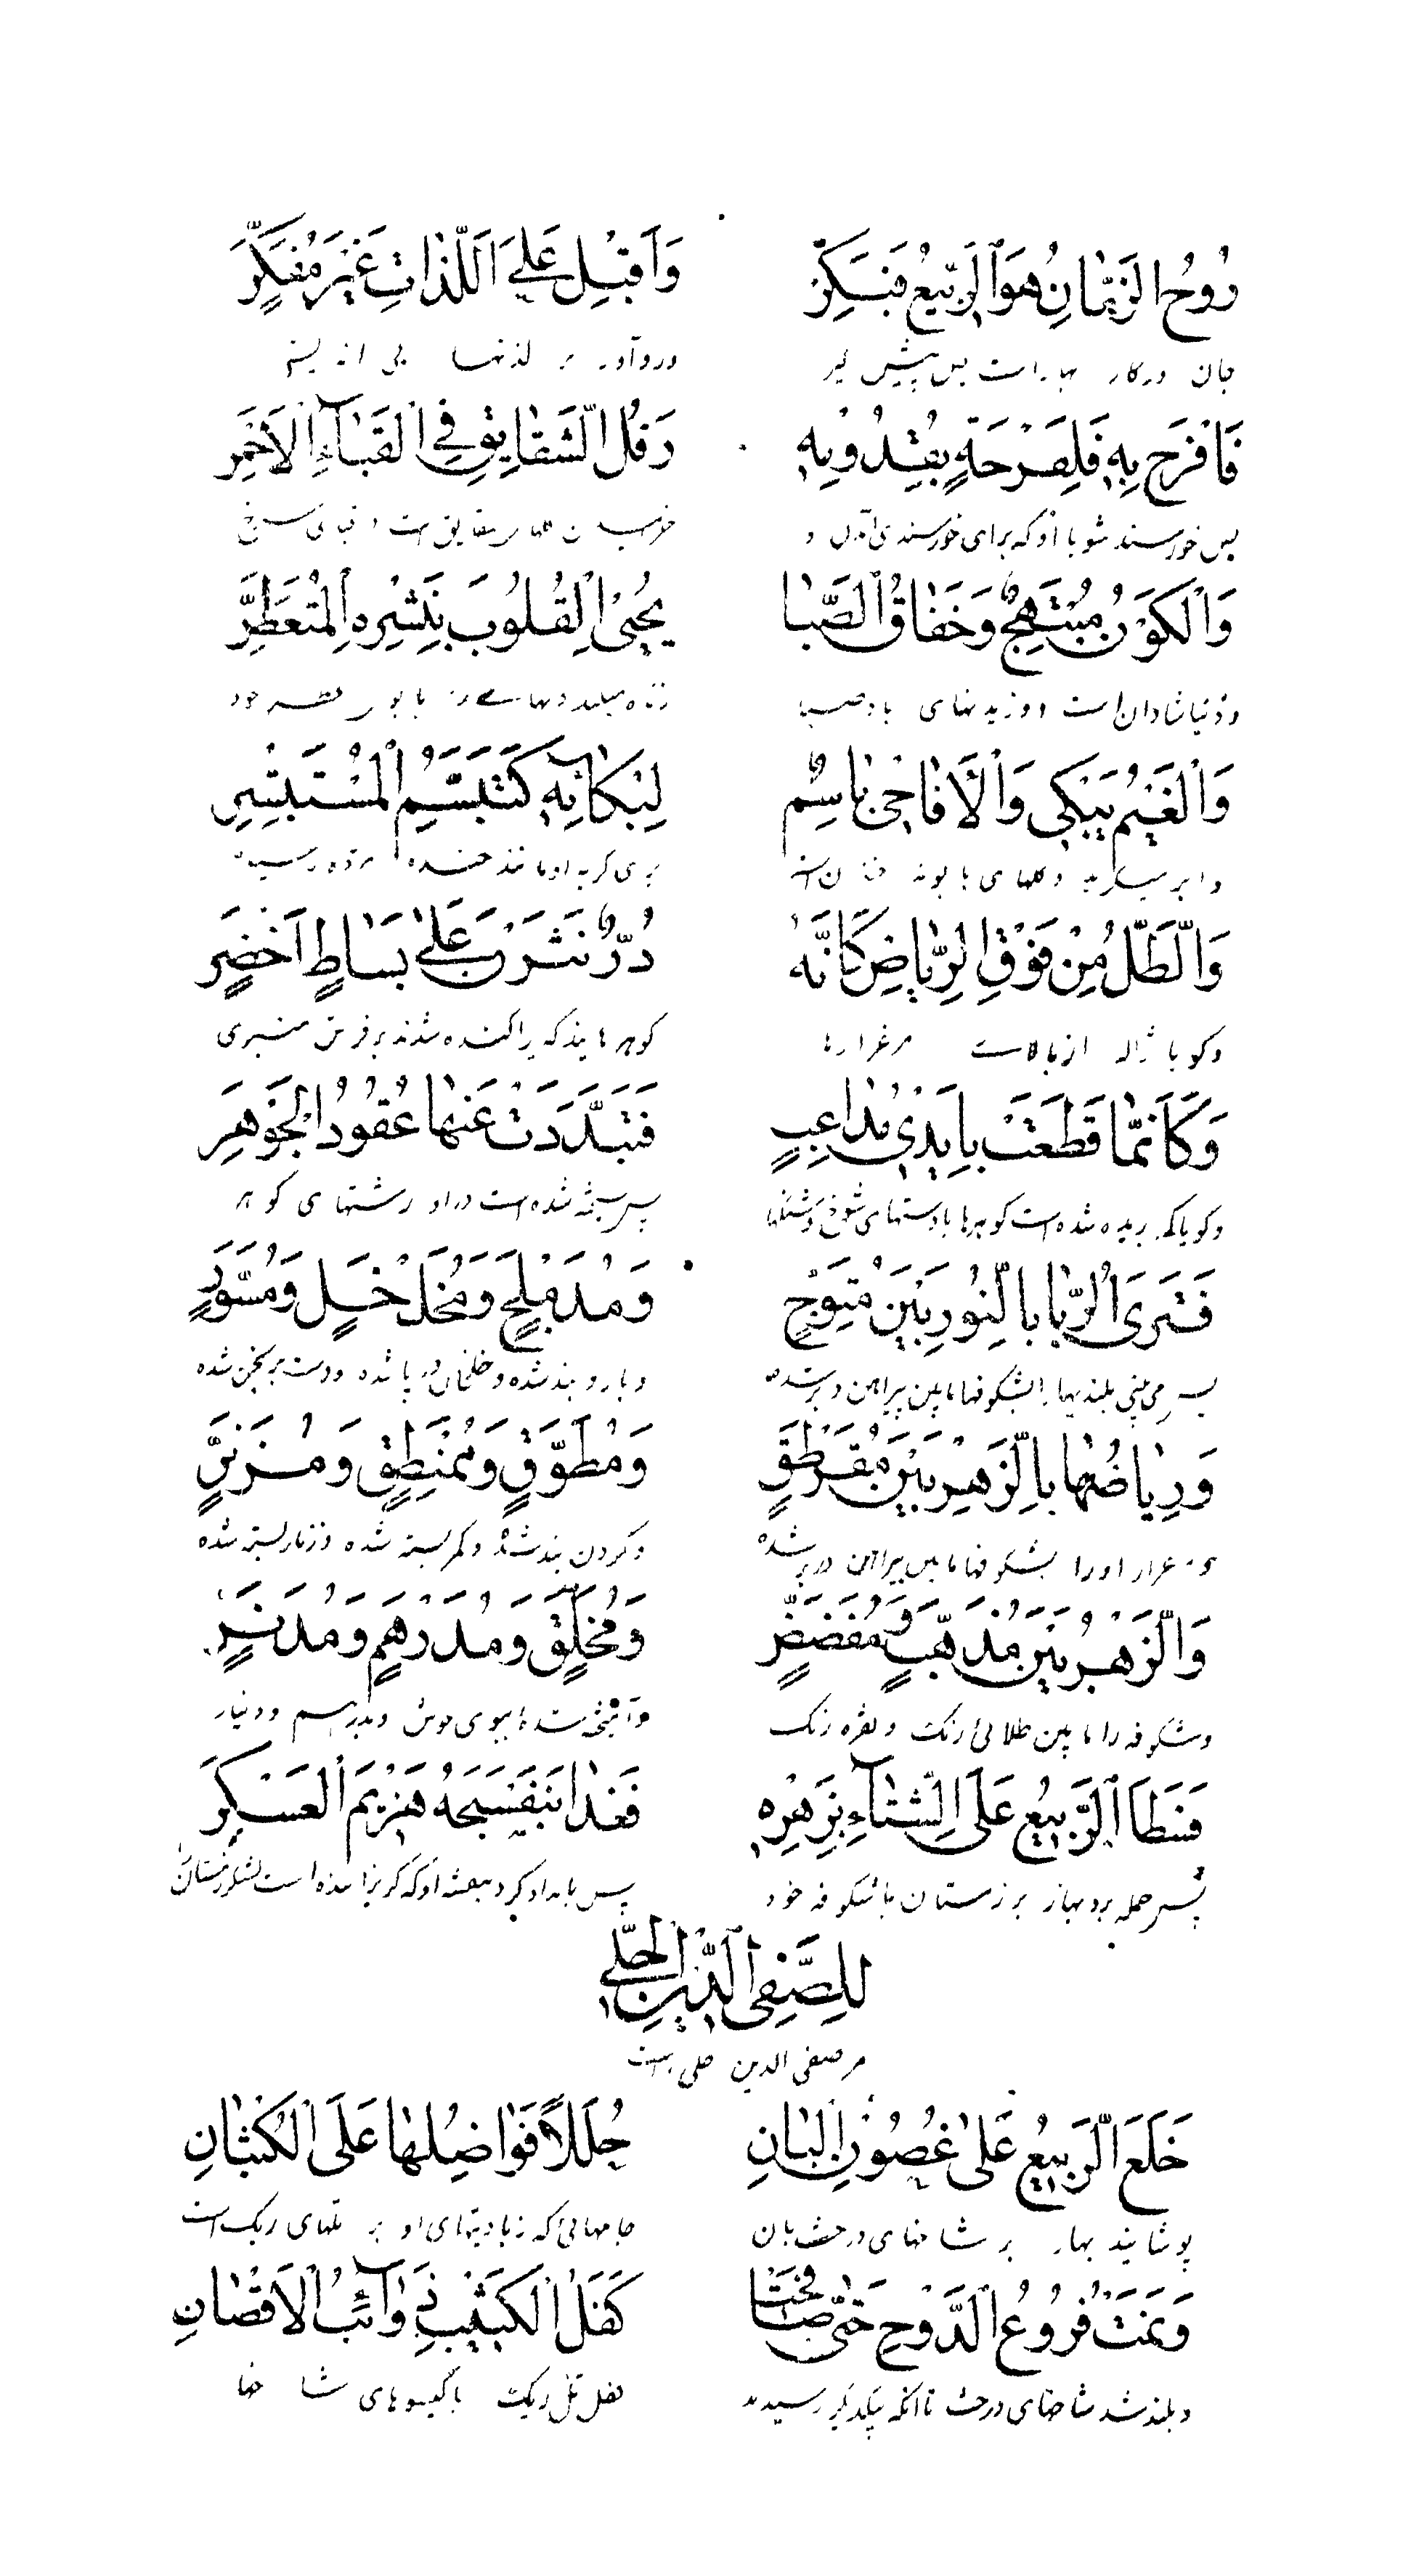 رُوحُ الزَّمَانِ هُوَ الرَّبِيعُ فَبَكِّرْ وَاَقْبِلْ عَلَى اللَّذَاتِ غَيْرَ مُفَكِّرِ
جان درکار بهار است پس پیش گیر ورو آور بر لذتها بی اندیشه
فَافْرَحْ بِهِ فَلِفَرْحَةٍ بِقُدُومِهِ رَفَلَ الشَّقَايِقُ فِي الْقَبَآءِ الْاَحْمَرِ
پس خورسند شو با او که برای خورسندی آمدن و
وَالْكَوْنُ مُبْتَهِجٌ وَخَفَاقُ الصَّبَا يُحْيِى الْقُلُوبَ بِنَشْرِهِ الْمُتَعَطِّرِ
ودنیا شادان است و وزیدنهای باد صبا زنده میکند دلهای را با بوی عطر خود
وَالْغَيْمُ يَبْكِي وَالْاَقَاحِي بَاسِمٌ لِبُكَائِهِ كَتَبَسُّمِ الْمُسْتَبْشِرِ
وابر میگرید و گلهای بابونه خندان است برای گریه او مانند خنده مژده رسیده
وَالطَّلُّ مِنْ فَوْقِ الرِّيَاضِ كَاَنَّهُ دُرٌّ نَثَرْنَ عَلَى بَسَاطٍ اَخْضَرِ
وکویا ژاله از بالاست مرغزارها کوهرهایند که پراکنده شدند بر فرش سبزی
وَكَاَنَّمَا قَطَعَتْ بِاَيْدِى مُدَاعِبٍ فَتَبَدَّدَتْ عَنْهَا عُقُودُ الْجَوْهَرِ
وکویا که بریده شده است کوهرها با دستهای شوخ پس ریخته شده است در او رشتهای کوهر
فَتَرَى الرُّبَا بِالنُّورِ بَيْنَ مُتَوَّجٍ وَمُدَمْلَجٍ وَمُخَلْخَلٍ وَمُسَوَّرِ
پس می بینی بلندیها را بشکوفها مابین پیراهن در بر شده وبازوبند شده وخلخال در پا شده ودست برنجن شده
وَرِيَاضُهَا بِالزَّهْرِ بَيْنَ مُقَرْطَقٍ وَمُطَوَّقٍ وَمُمَنْطَقٍ وَمُزَنَّرِ
ومرغزار اورا بشکوفها مابین پیراهن در بر شده وکردن بند شده وکمر بسته شده وزنار بسته شده
وَالزَّهْرُ بَيْنَ مُذَهَّبٍ وَمُفَضَّضٍ وَمُخَلَّقٍ وَمُدَرْهَمٍ وَمُدَنَّرِ
وشکوفه را مابین طلائی رنک ونقره رنک وآمیخته شده ببوی خوش وبدرهم ودینار
فَسَطَا الرَّبِيعُ عَلَى الشِّتَآءِ بِزَهْرِهِ فَغَدَا بَنَفْسَجُهُ هَزِيمَ الْعَسْكَرِ
پس حمله برد بهار بر زمستان باشکوفه خود پس بامداد کرد بنفشه او که گریزانیده است لشکر زمستان
لِلصَّفِي الدِّينِ الْحِلِّي
مر صفی الدین حلی است
خَلَعَ الرَّبِيعُ عَلَى غُصُونِ الْبَانِ حُلَلاً فَوَاضِلُهَا عَلَى الْكُثْبَانِ
پوشانید بهار بر شاخهای درخت بان جامهائی که زیادیهای او بر تلهای ریک است
وَنَمَتْ فُرُوعُ الدَّوْحِ حَتَّى صَافَحَتْ كَفَلَ الْكَثِيبِ ذَوَآئِبُ الْاَغْصَانِ
وبلند شد شاخهای درخت تا انکه بیکدیگر رسیدند کفل تل ریک با گیسوهای شاخها